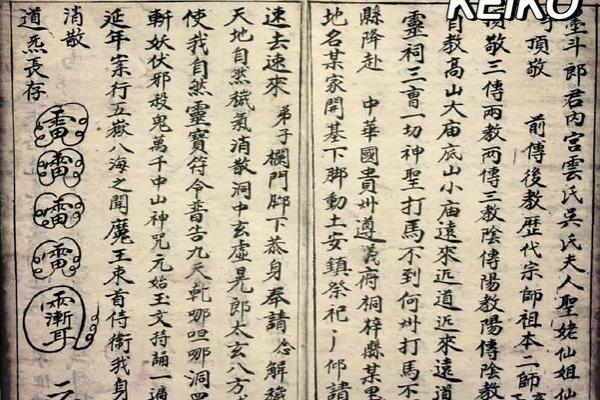 KEIKO
霊斗郎君內宮雲氏吳氏夫人聖姥仙姐仙
可頂敬 前傳後教歷代宗師祖本二師
頂敬三傳兩教兩傳三教陰傳陽教陽傳陰教
有教高山大庙底山小庙遠來近道近來遠道
靈祠三曺一切神聖打馬不到何州打馬不
縣降赴 中華國貴州遵義府桐梓縣某里
地名某家開基下脚動土安鎮祭祀 仰請
速去速來 弟子欄門脚下恭身奉請 念解穢
天地自然穢氣消散洞中玄虛晃郎太玄八方
使我自然靈寶符令普告九天乾哪呾哪洞
斬妖伏邪殺鬼萬千中山神咒元始玉文持誦一遍
延年案行五嶽八海之聞魔王束首侍衛我身
消散
道炁長存